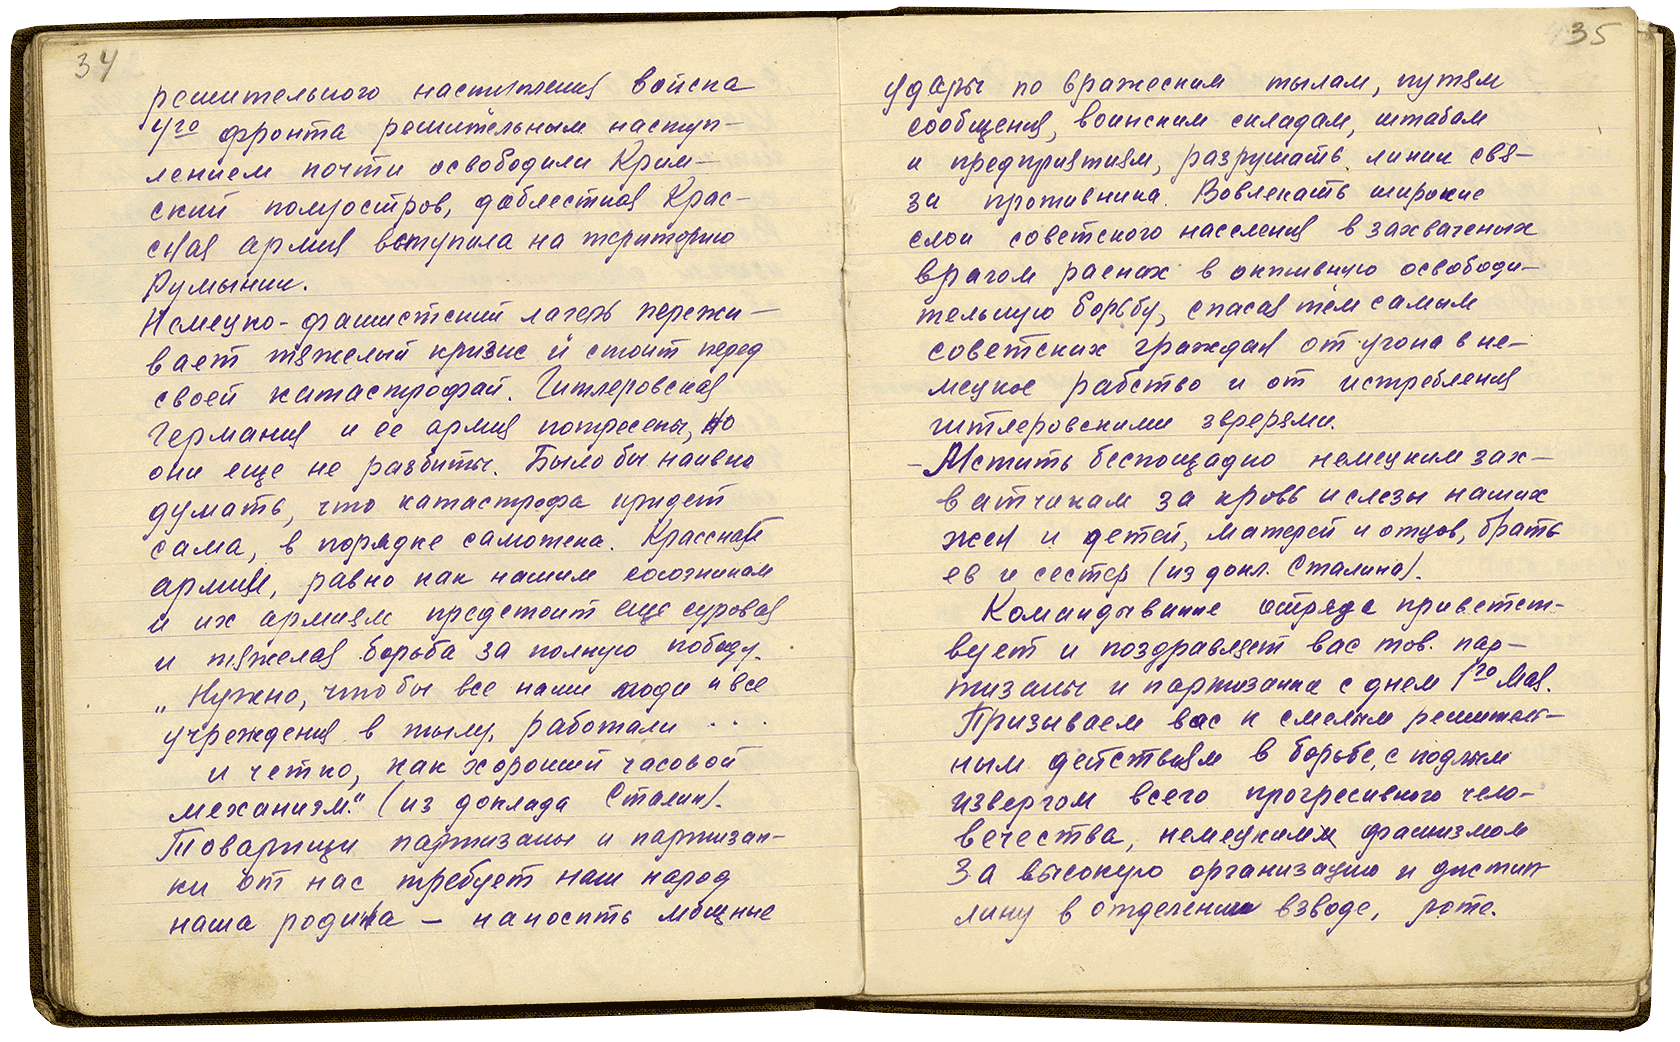 34
решительного наступления войска
4го фронта решительным наступ-
лением почти освободили Крим-
ский полуостров, доблестная Крас-
ная армия вступила на територию
Румынии.
Немецко-фашистский лагерь пережи-
вает тяжелый кризис и стоит перед
своей катастрофай. Гитлеровская
Германия и ее армия потресены, но
они еще не разбиты. Было бы наивно
думать, что катастрофа придет
сама, в порядке самотека. Красной
армии, равно как нашим союзникам
и их армиям предстоит еще суровая
и тяжелая борьба за полную победу.
„Нужно, что бы все наши люди и все
учреждения в тылу, работали . . .
и четко, как хороший часовой
механизм." (из доклада Сталин).
Товарищи партизаны и партизан-
ки от нас требует наш народ
наша родина — наносить мощные
35
удары по вражеским тылам, путям
сообщения, воинским складам, штабам
и предприятиям, разрушать линии свя-
зи противника. Вовлекать широкие
слои советского населения в захваченых
врагом раених в активную освободи-
тельную борьбу, спасая тем самым
советских граждан от угона в не-
мецкое рабство и от истребления
гитлеровскими зверями.
- Мстить беспощадно немецким зах-
ватчикам за кровь и слезы наших
жен и детей, матерей и отцов, брать
ев и сестер (из докл. Сталина).
Командывание отряда приветст-
вует и поздравляет вас тов. пар-
тизаны и партизанки с днем 1го Мая.
Призываем вас к смелым решитель-
ным действиям в борьбе, с подлым
извергом всего прогресивного чело-
вечества, немецким фашизмом
За высокую организацию и дистип
лину в отделении взводе, роте.